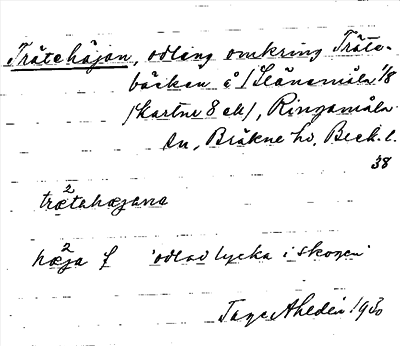 Trätehäjan, odling omkring Träte-
bäcken å /Slänsmåla 1/8
/kartne 8 ck/, Ringamåla
sn, Bräkne hd, Blek. l.
38
2
trætahæjana
2
hæja f 'odlad lycka i skogen'
Tage Ahldén 1930